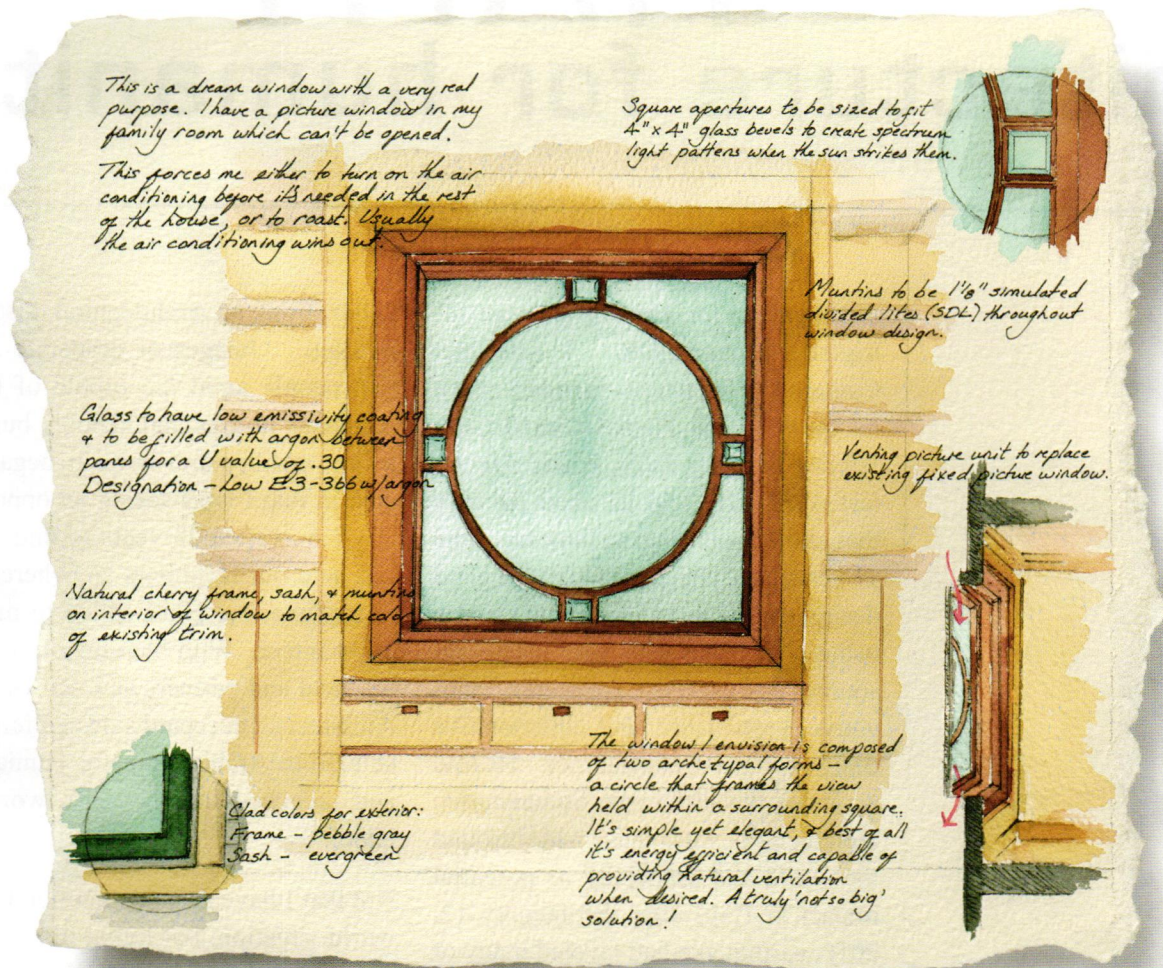 This is a dream window with a very real
purpose. I have a picture window in my
family room which can't be opened.
This forces me either to turn on the air
conditioning before it's needed in the rest
of the house, or to roast. Usually
the air conditioning wins out.
Square apertures to be sized to fit
4" x 4" glass bevels to create spectrum
light pattens when the sun strikes them.
Muntins to be 1 1/8" simulated
divided lites (SDL) throughout
window design.
Glass to have low emissivity coating
+ to be filled with argon between
panes for a U value of .30
Designation - Low E3-366 w/argon
Venting picture unit to replace
existing fixed picture window.
Natural cherry frame, sash, + muntins
on interior of window to match color
of existing trim.
Clad colors for exterior:
Frame - pebble gray
Sash - evergreen
The window I envision is composed
of two archetypal forms -
a circle that frames the view
held within a surrounding square.
It's simple yet elegant, & best of all
it's energy efficient and capable of
providing natural ventilation
when desired. A truly 'not so big'
solution!